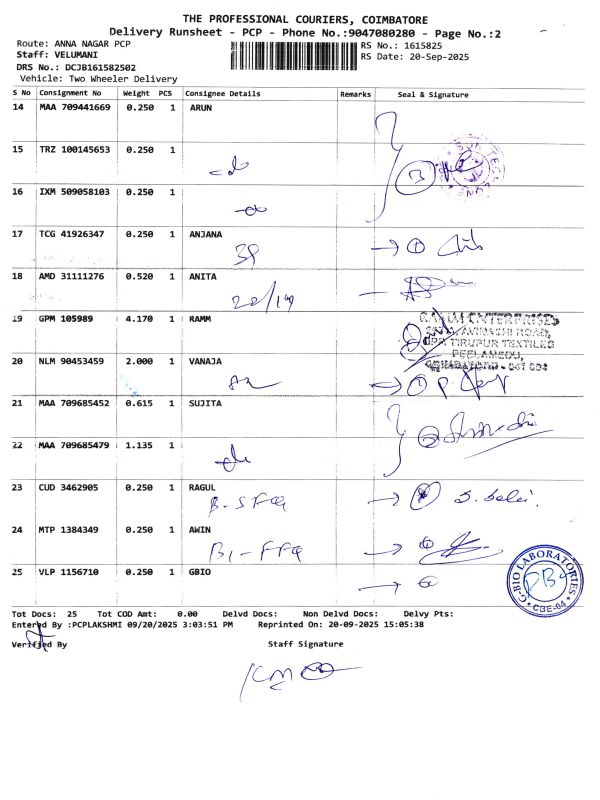 THE PROFESSIONAL COURIERS, COIMBATORE
Delivery Runsheet - PCP - Phone No.:9047080280 - Page No.:2
Route: ANNA NAGAR PCP
RS No.: 1615825
Staff: VELUMANI
RS Date: 20-Sep-2025
DRS No.: DCJB161582502
Vehicle: Two Wheeler Delivery
S No Consignment No Weight PCS Consignee Details Remarks Seal & Signature
14 MAA 709441669 0.250 1 ARUN
15 TRZ 100145653 0.250 1
16 IXM 509058103 0.250 1
17 TCG 41926347 0.250 1 ANJANA
39
18 AMD 31111276 0.520 1 ANITA
19 GPM 105989 4.170 1 RAMM
ENTERPRISES
AVINASHI ROAD,
OPP. TIRUPUR TEXTILES
PEELAMEDU,
COIMBATORE - 641 004
20 NLM 90453459 2.000 1 VANAJA
21 MAA 709685452 0.615 1 SUJITA
22 MAA 709685479 1.135 1
23 CUD 3462905 0.250 1 RAGUL
24 MTP 1384349 0.250 1 AWIN
B1-FFQ
25 VLP 1156710 0.250 1 GBIO
G-BIO LABORATORIES
CBE-04
Tot Docs: 25 Tot COD Amt: 0.00 Delvd Docs: Non Delvd Docs: Delvy Pts:
Entered By :PCPLAKSHMI 09/20/2025 3:03:51 PM Reprinted On: 20-09-2025 15:05:38
Verified By Staff Signature